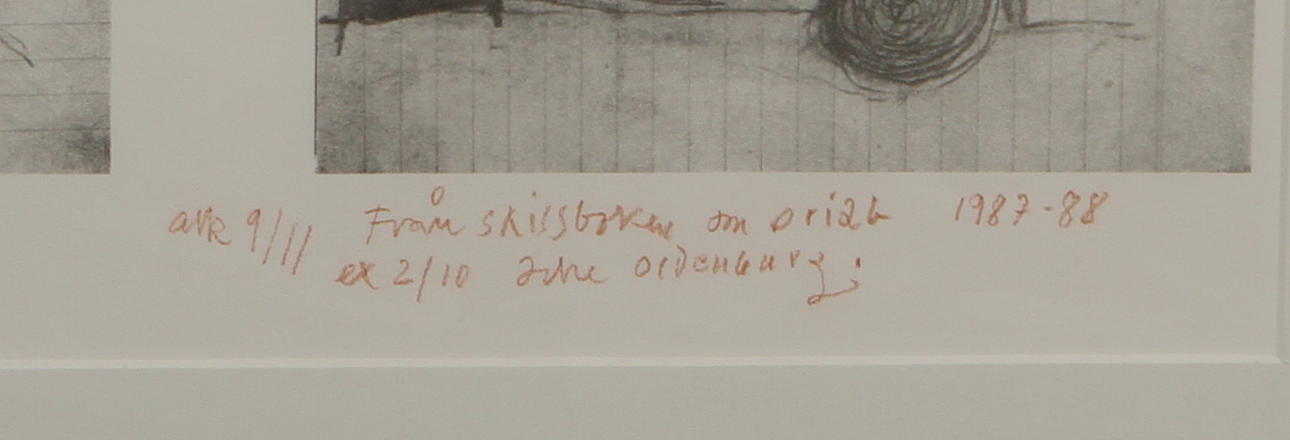 ark 9/11 Från skissboken om 1987-88
ex 2/10 Oldenburg.